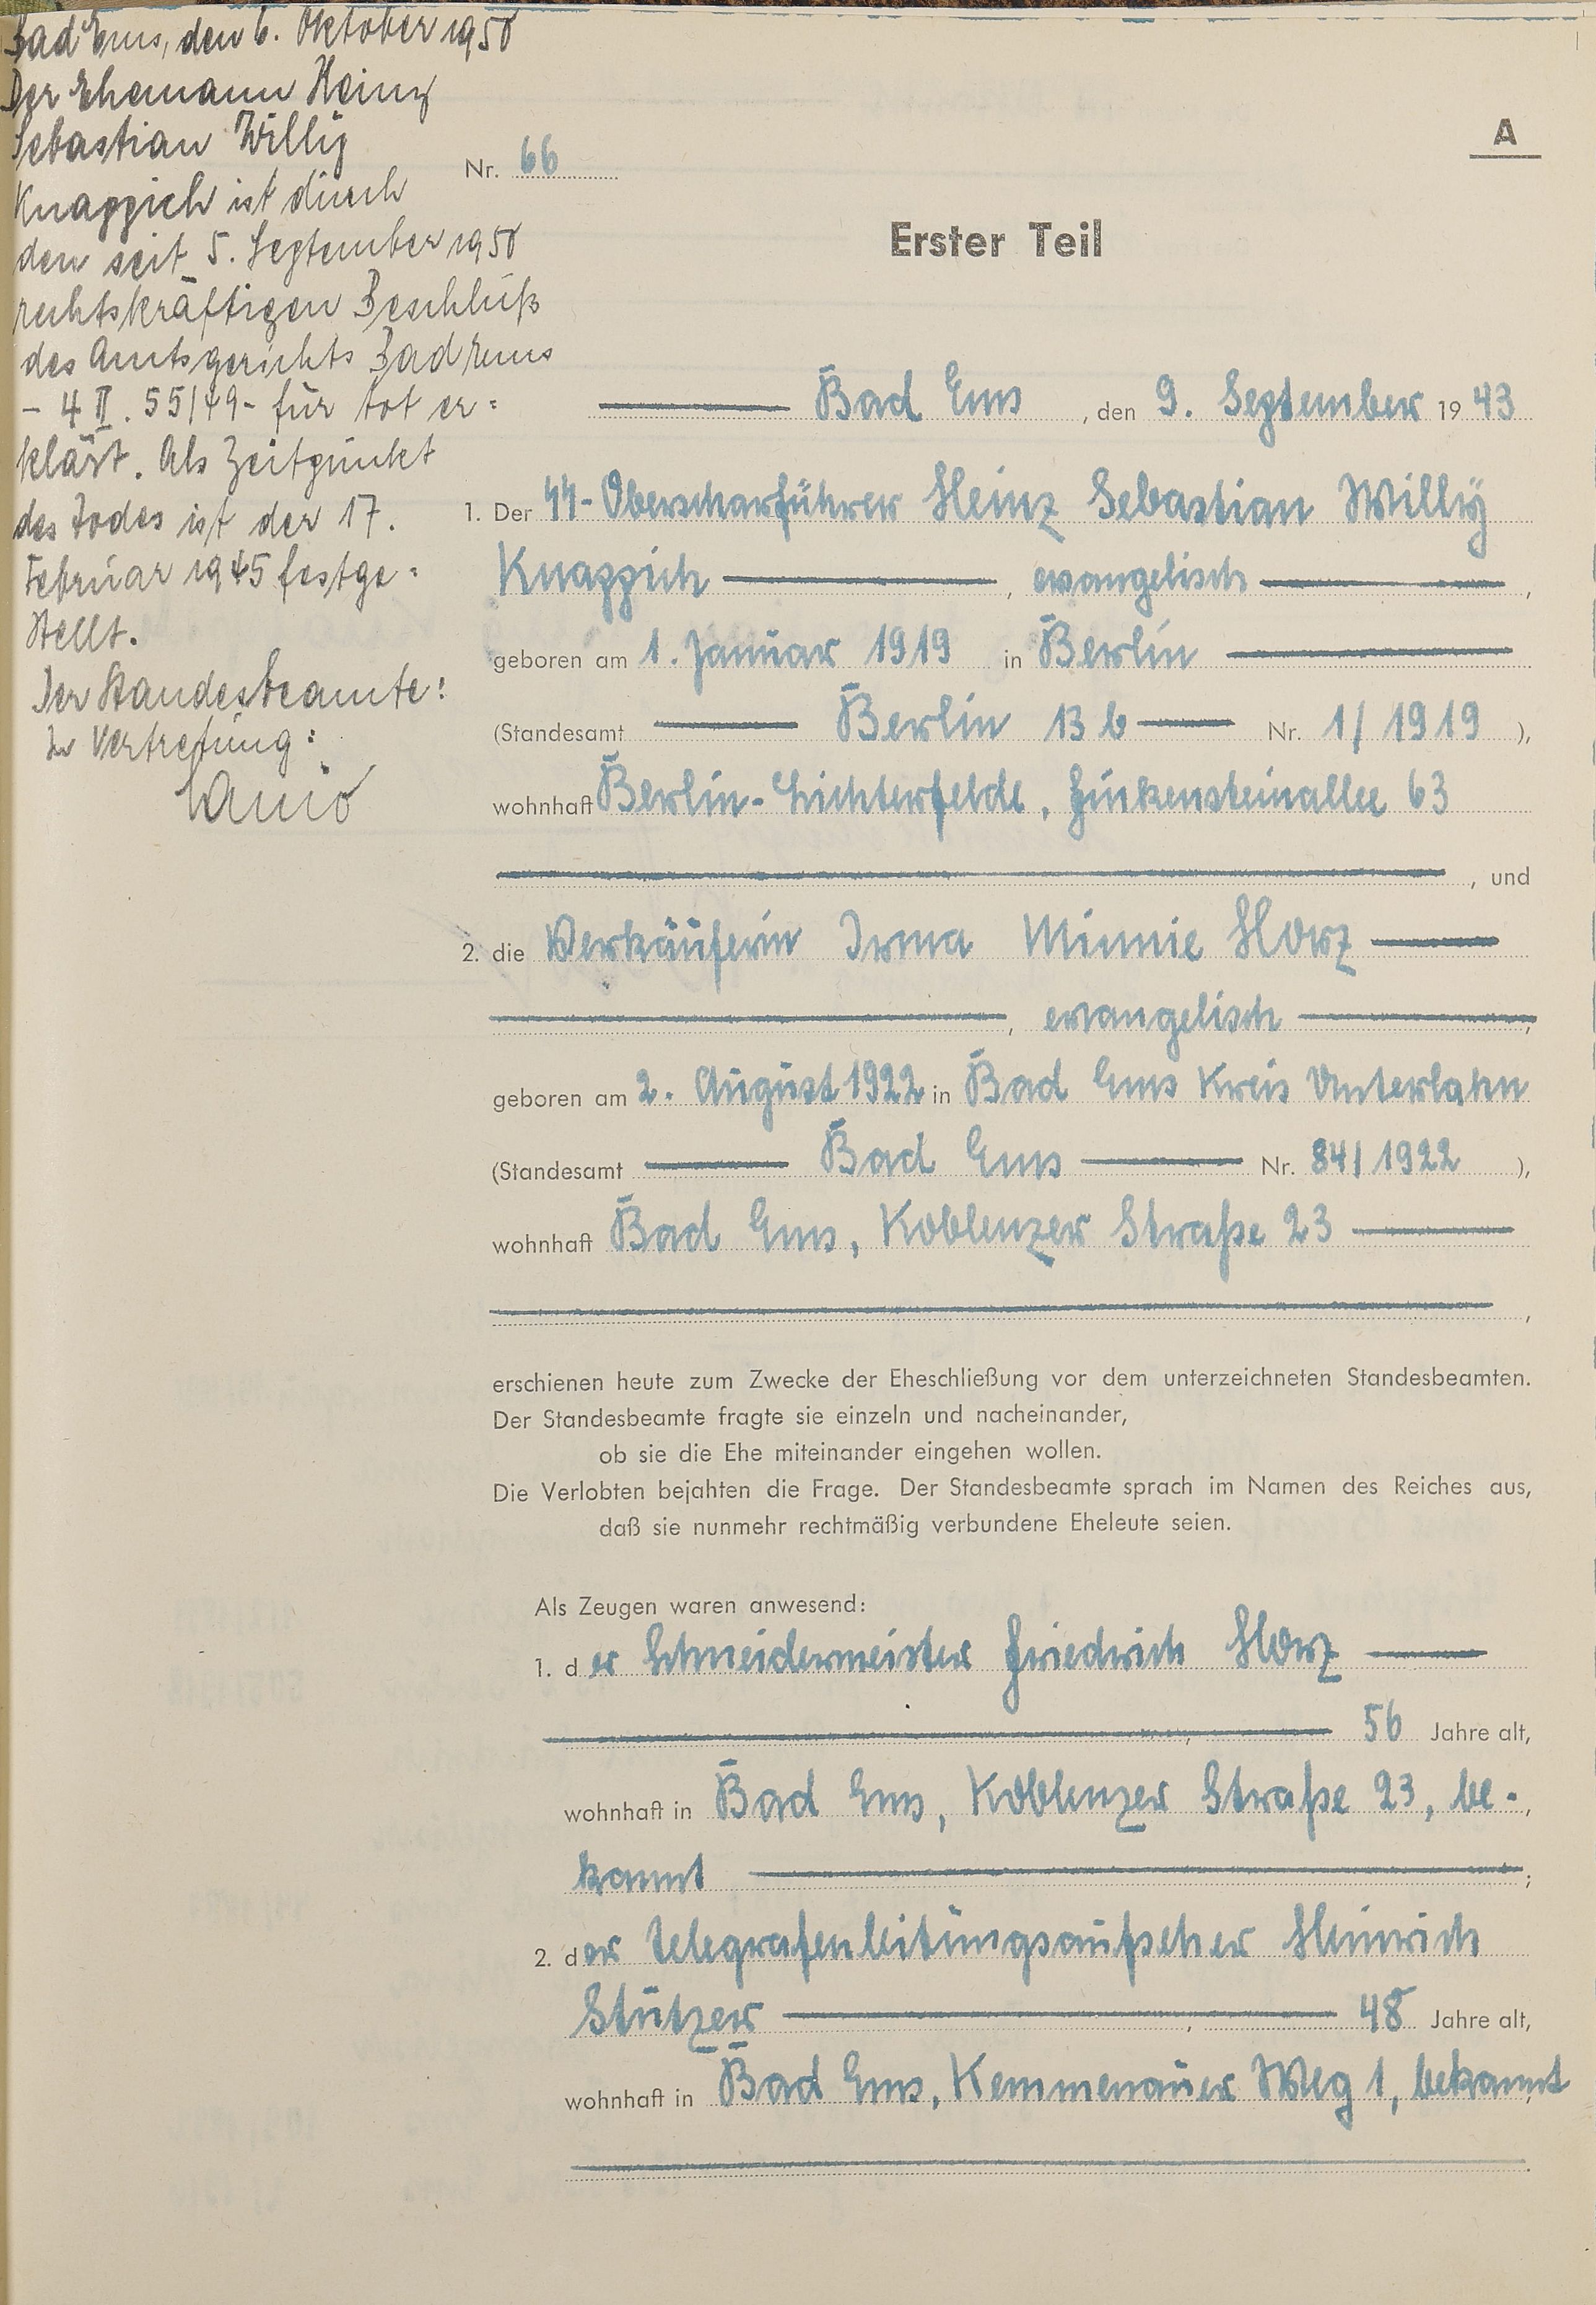 Bad Ems, den 6. Oktober 1950
Der Ehemann Heinz
Sebastian Willy
Knappich ist durch
den seit 5. September 1950
rechtskräftigen Beschluß
des Amtsgerichts Bad Ems
- 4 II. 55/49 - für tot er=
klärt. Als Zeitpunkt
des Todes ist der 17.
Februar 1945 festge=
stellt.
Der Standesbeamte:
In Vertretung:
A
Nr. 66
Erster Teil
Bad Ems, den 9. September 1943
1. Der SS-Oberscharführer Heinz Sebastian Willy
Knappich, evangelisch,
geboren am 1. Januar 1919 in Berlin
(Standesamt Berlin 13 b Nr. 1/1919),
wohnhaft Berlin-Lichterfelde, Finkensteinallee 63
, und
2. die Verkäuferin Irma Minnie Horz
, evangelisch,
geboren am 2. August 1922 in Bad Ems Kreis Unterlahn
(Standesamt Bad Ems Nr. 84/1922),
wohnhaft Bad Ems, Koblenzer Straße 23
,
erschienen heute zum Zwecke der Eheschließung vor dem unterzeichneten Standesbeamten.
Der Standesbeamte fragte sie einzeln und nacheinander,
ob sie die Ehe miteinander eingehen wollen.
Die Verlobten bejahten die Frage. Der Standesbeamte sprach im Namen des Reiches aus,
daß sie nunmehr rechtmäßig verbundene Eheleute seien.
Als Zeugen waren anwesend:
1. der Schneidermeister Friedrich Horz
, 56 Jahre alt,
wohnhaft in Bad Ems, Koblenzer Straße 23, be-,
kannt;
2. der Telegrafenleitungsaufseher Heinrich
Stützer, 48 Jahre alt,
wohnhaft in Bad Ems, Kemmenauer Weg 1, bekannt,
.